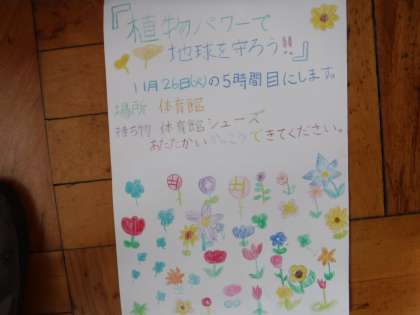 『植物パワーで
地球を守ろう!!』
11月26日(火)の5時間目にします。
場所 体育館
持ち物 体育館シューズ
あたたかいかっこうできてください。